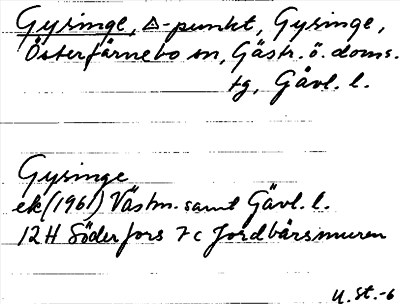 Gysinge, △-punkt, Gysinge,
Österfärnebo sn, Gästr. ö. doms.
tg, Gävl. l.
Gysinge
ek (1961) Västm. samt Gävl. l.
12H Söderfors 7c Jordbärsmuren
U. St. -6